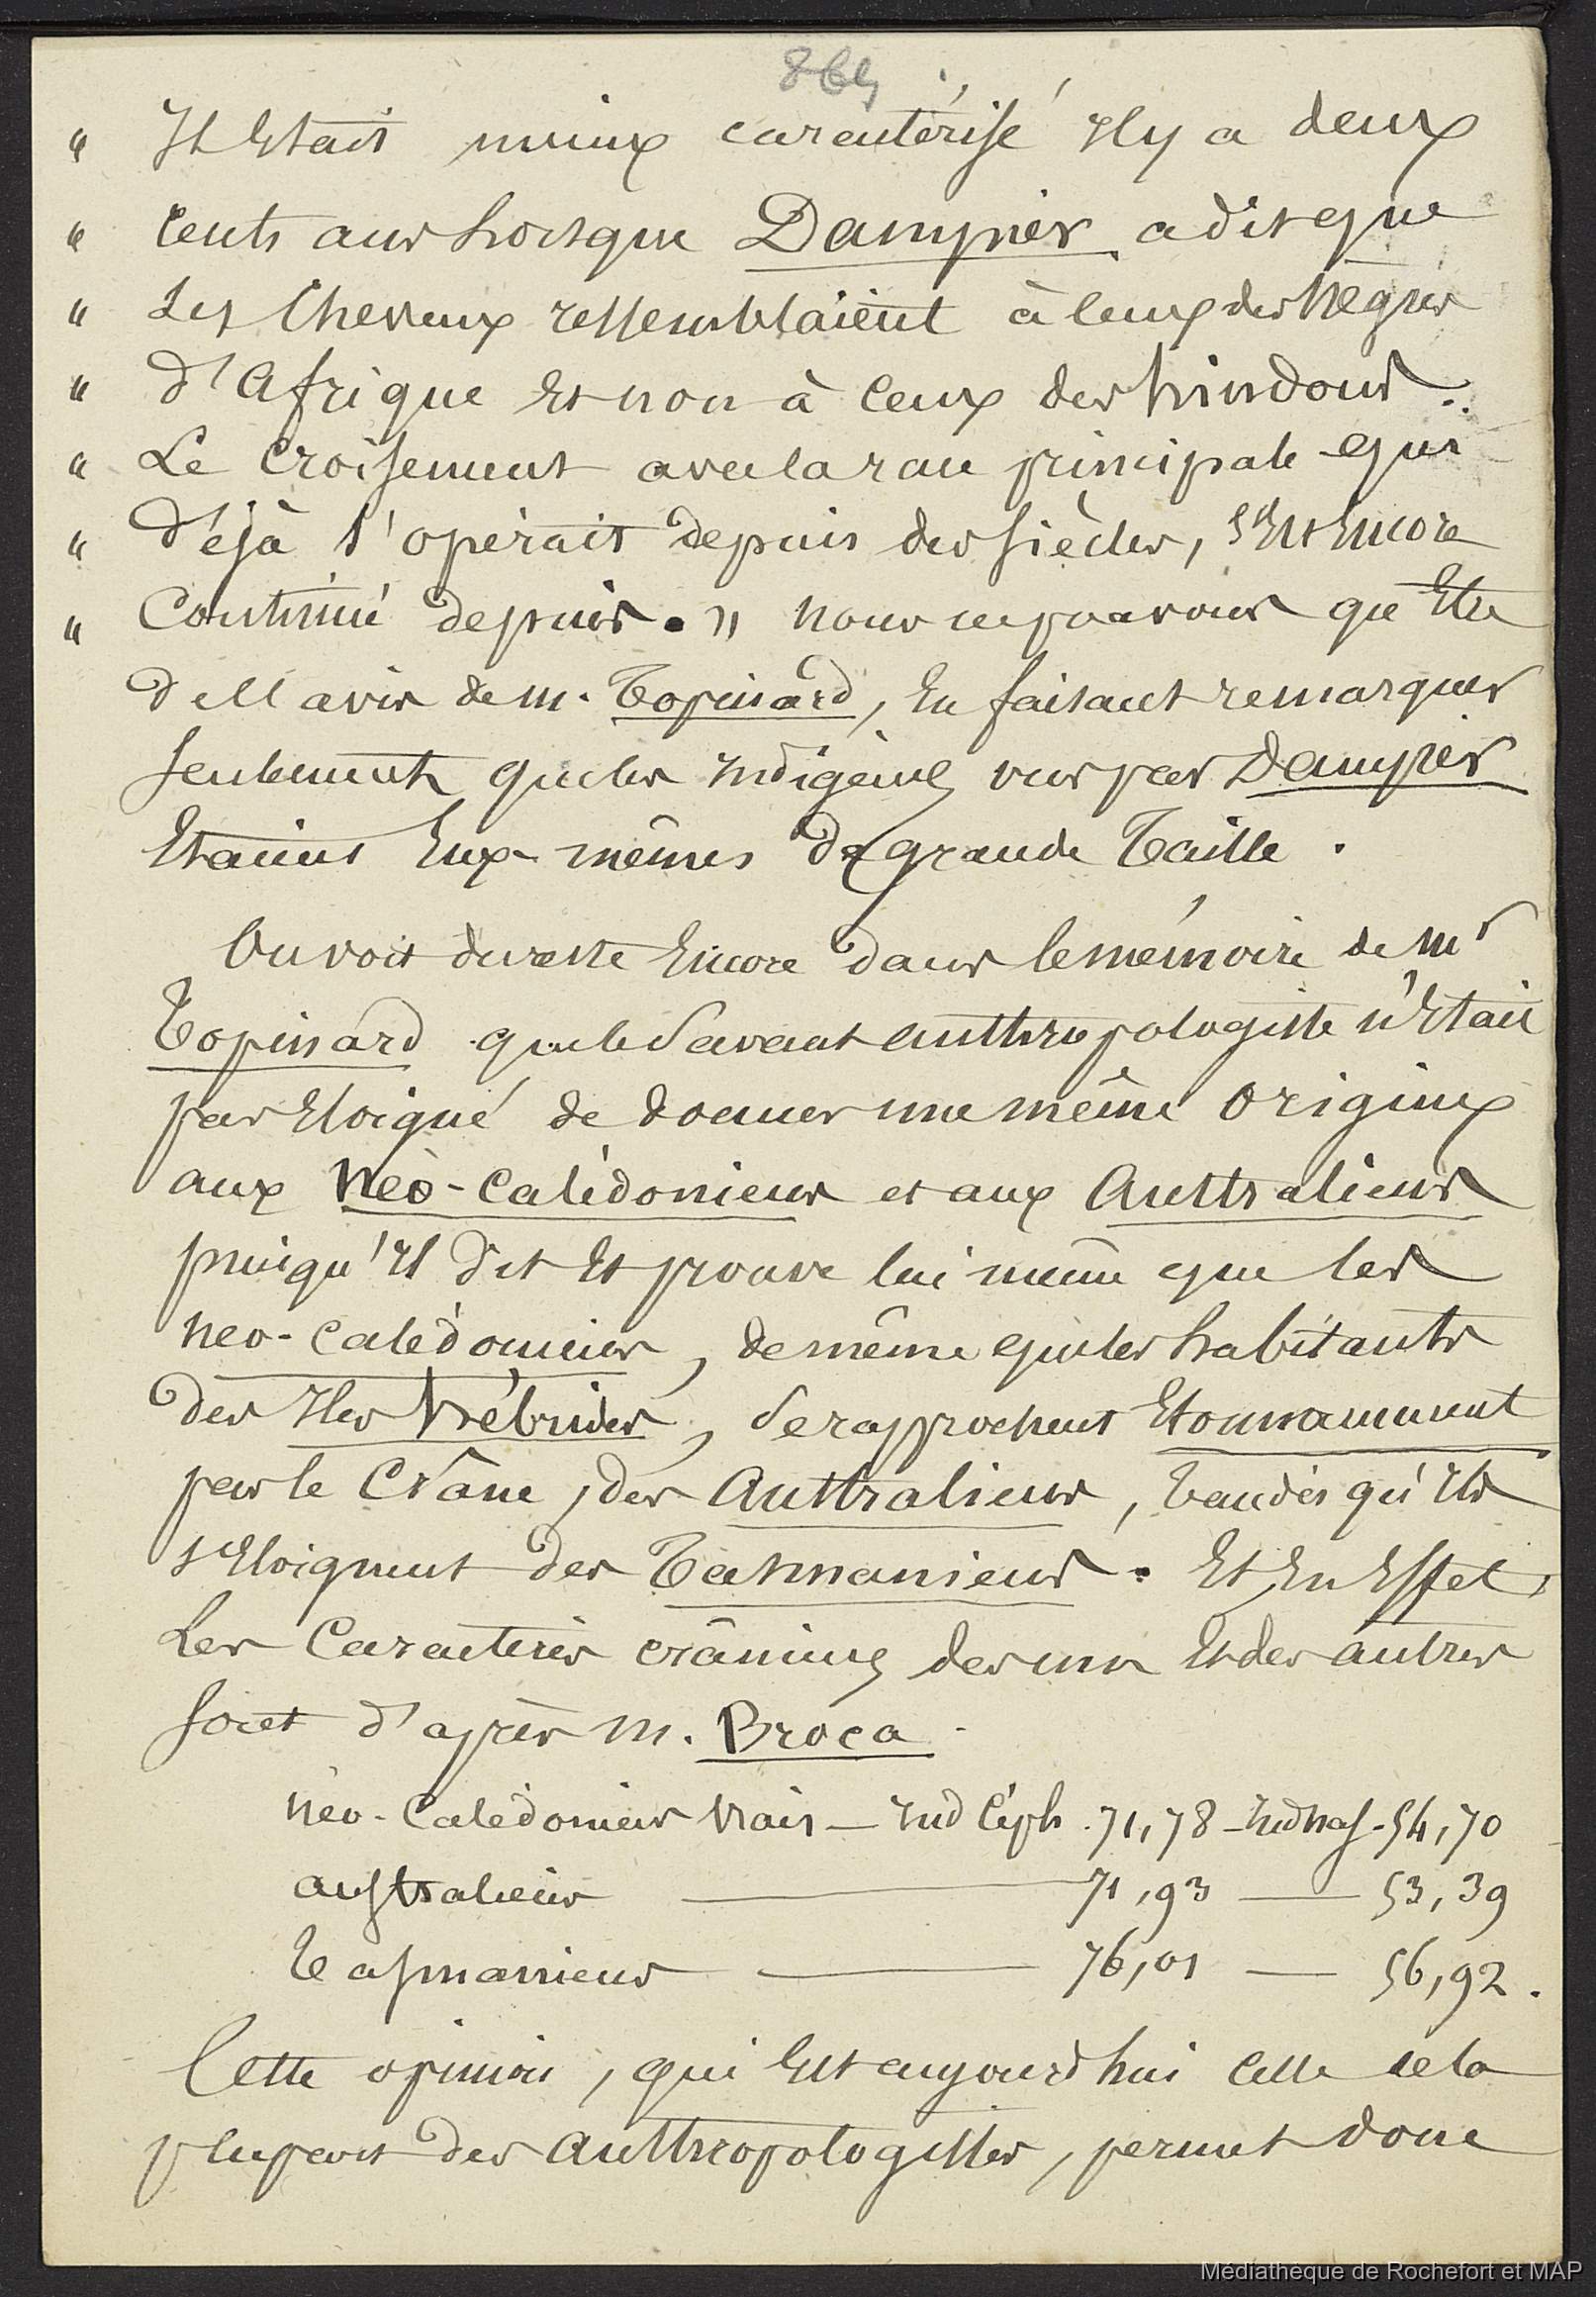 864
" Il était mieux caractérisé il y a deux
" cents ans lorsque Dampier a dit que
" les cheveux ressemblaient à ceux des nègres
" d'Afrique et non à ceux des hindous.
" Le croisement avec la race principale qui
" déjà s'opérait depuis des siècles, s'est encore
" continué depuis. " nous ne pouvons qu'être
de l'avis de m. Topinard, en faisant remarquer
seulement que les indigènes vus par Dampier
étaient eux-mêmes de grande taille.
On voit du reste encore dans le mémoire de Mr
Topinard que le savant anthropologiste n'était
pas éloigné de donner une même origine
aux Néo-Calédoniens et aux Australiens
puisqu'il dit et prouve lui même que les
néo-calédoniens, de même que les habitants
des Iles Hébrides, se rapprochent étonnamment
par le Crâne, des Australiens, tandis qu'ils
s'éloignent des Tasmaniens. Et en effet,
Les Caractères crâniens des uns et des autres
sont d'après M. Broca.
néo-Calédoniens vrais — Ind Céph. 71,78 - Ind nas - 54,70
australiens — 71,93 — 53,39
Tasmaniens — 76,01 — 56,92.
Cette opinion, qui est aujourd'hui celle de la
plupart des anthropologistes, permet donc
Médiathèque de Rochefort et MAP